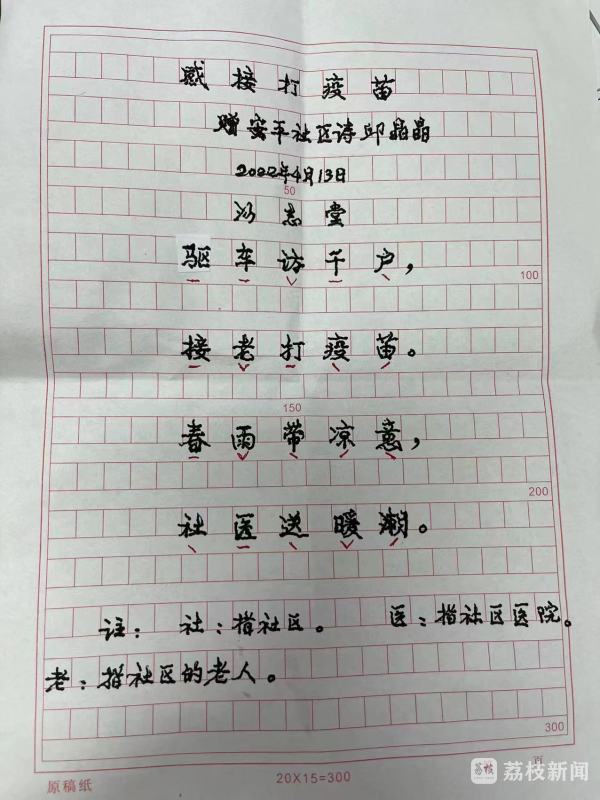 感接打疫苗
赠安平社区诗邱晶晶
2022年4月13日
50
志堂
驱车访千户，
100
接老打疫苗。
150
春雨带凉意，
200
社医送暖潮。
注：社：指社区。医：指社区医院。
老：指社区的老人。
300
原稿纸
20X15=300
页
荔枝 荔枝新闻